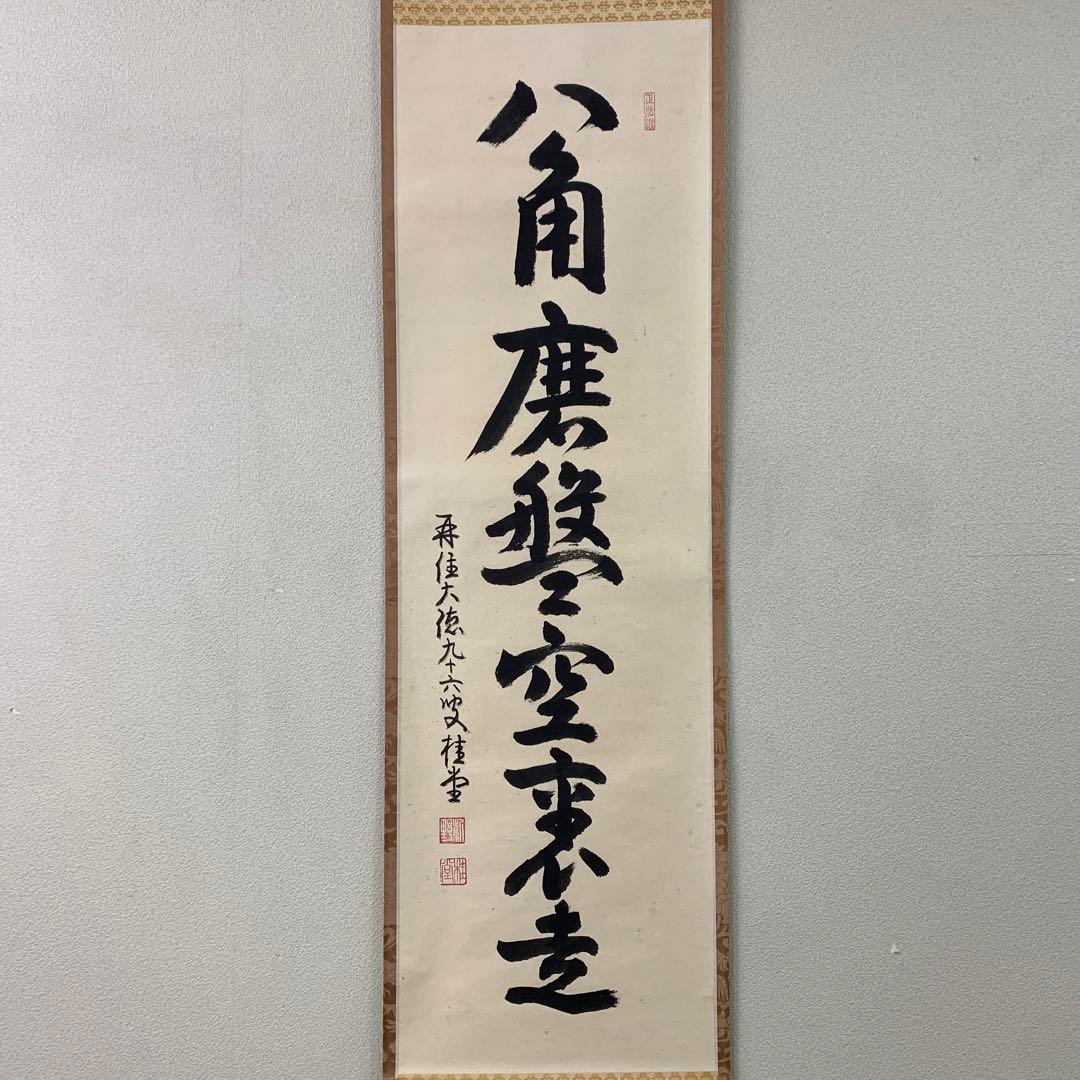 八角磨盤空裏走
再住大徳九十六叟桂堂